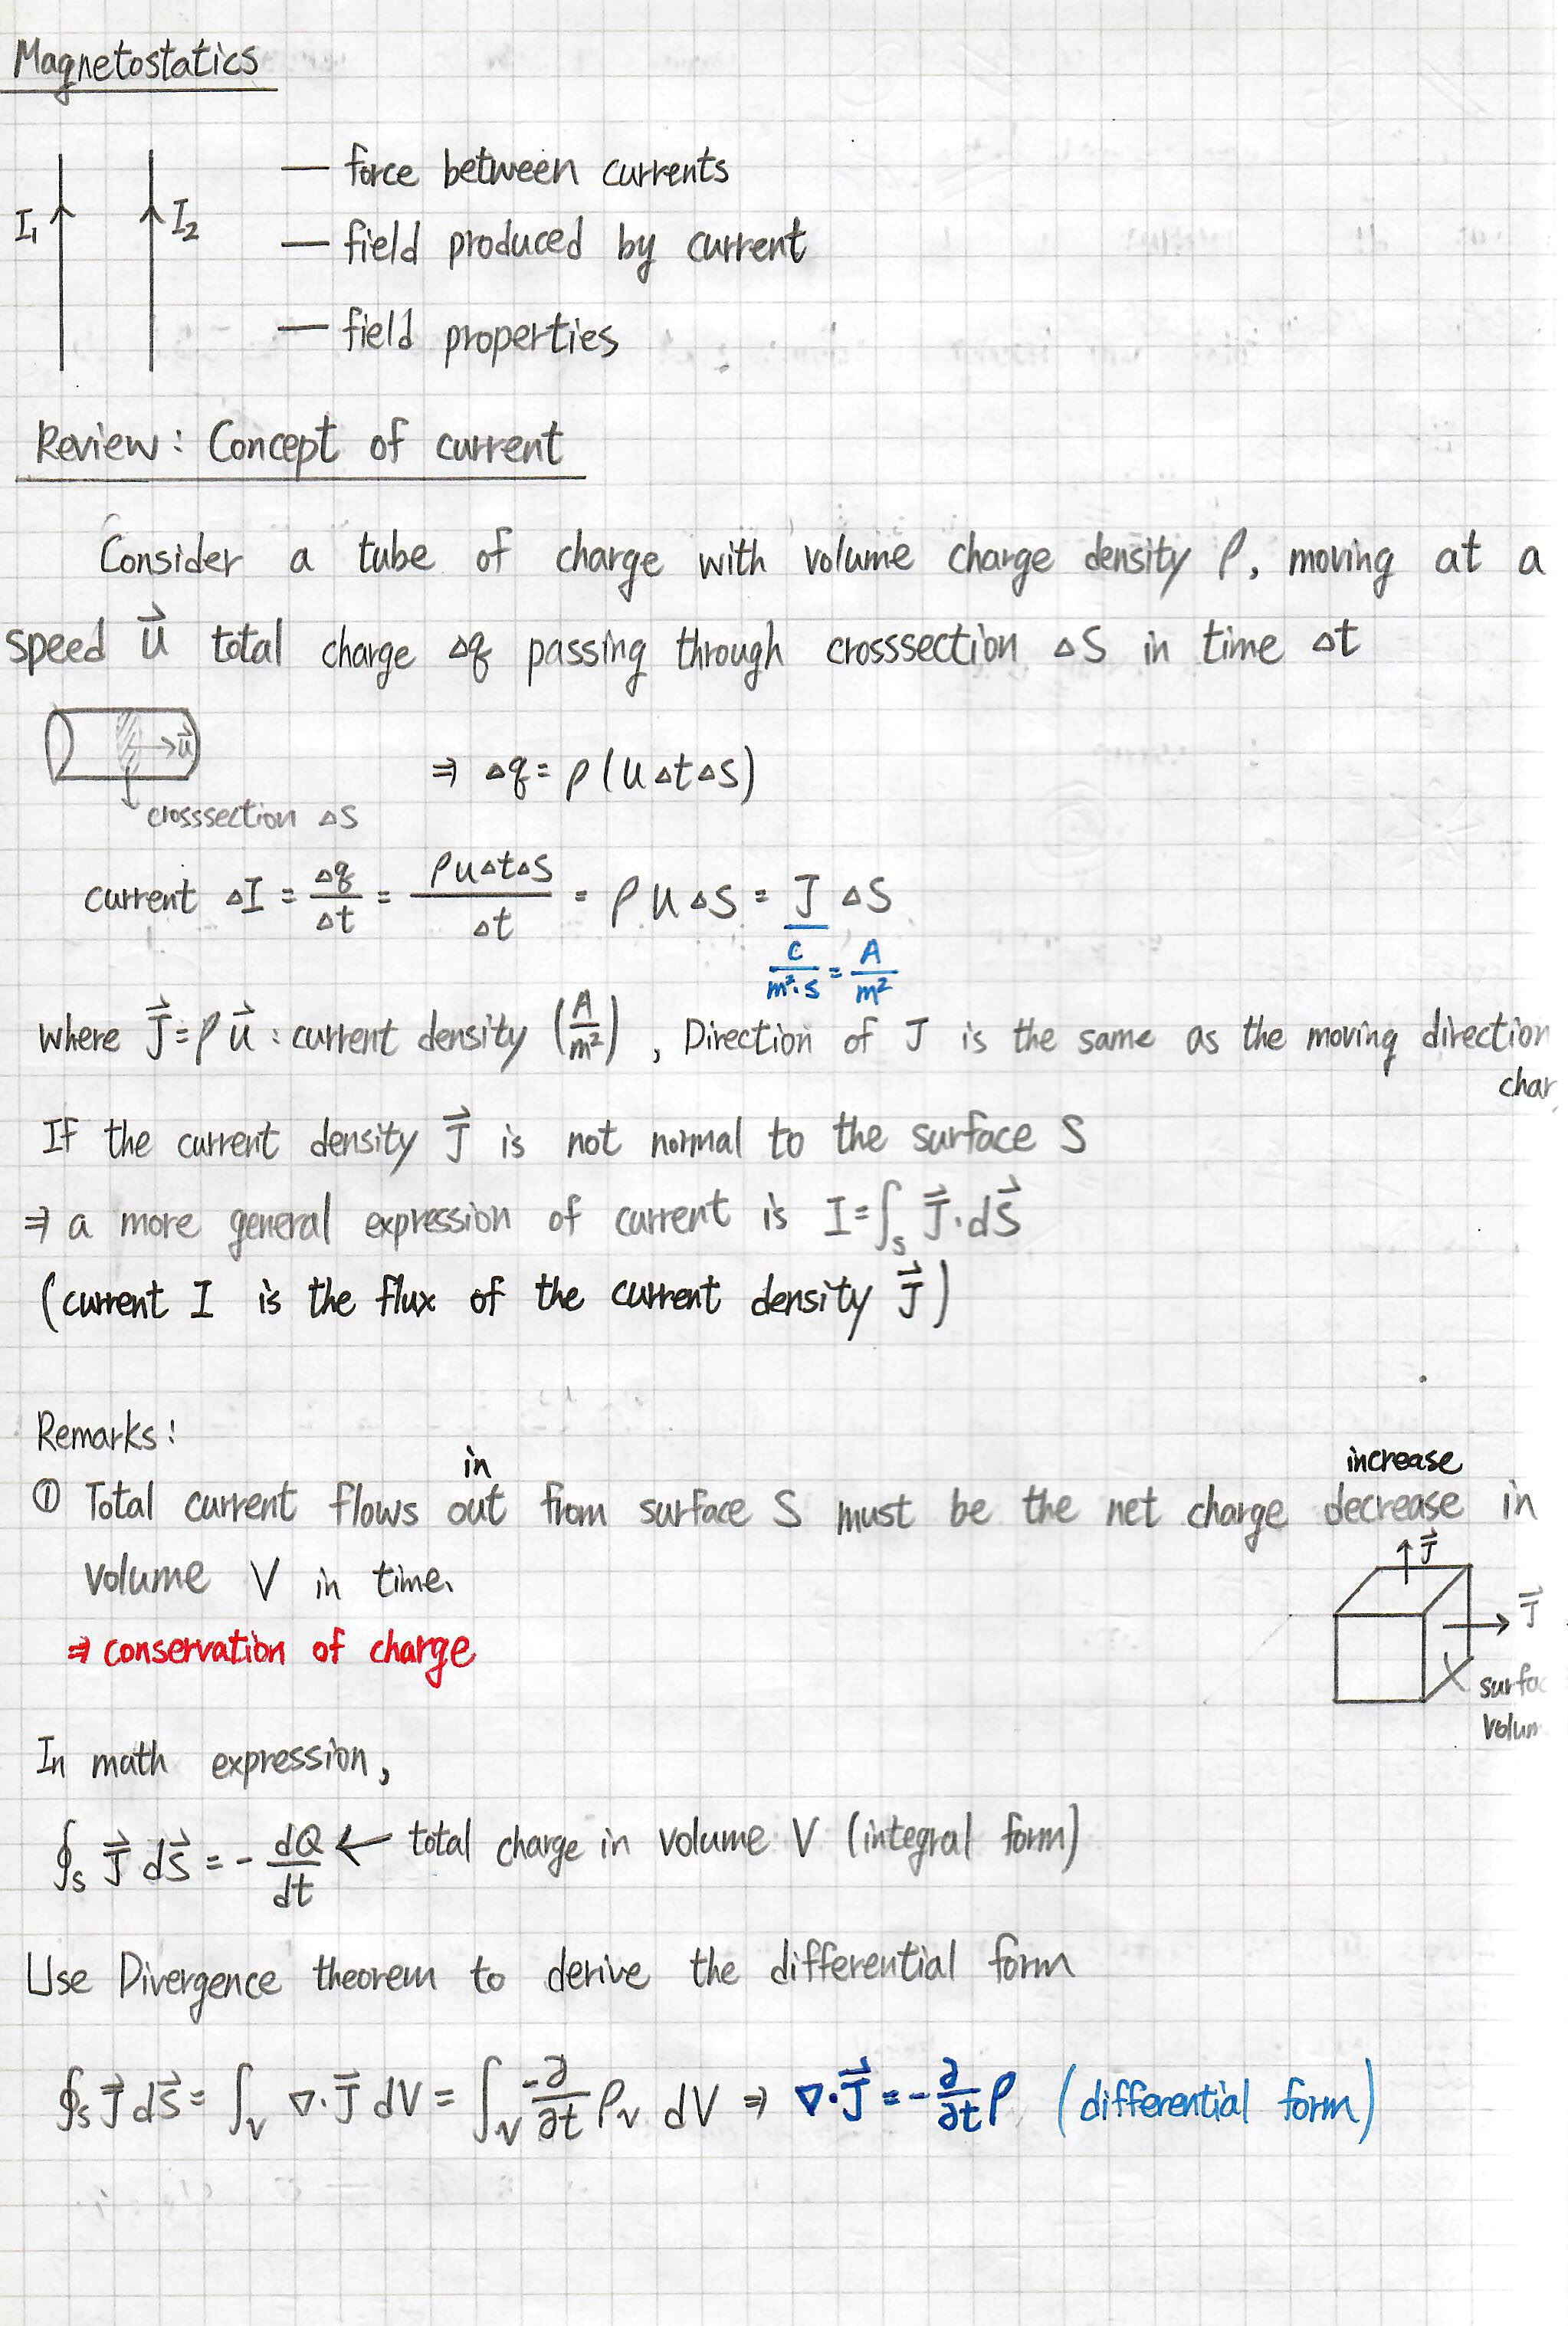 Magnetostatics
I₁ I₂
— force between currents
— field produced by current
— field properties
Review: Concept of current
Consider a tube of charge with volume charge density ρ, moving at a
speed u⃗ total charge Δq passing through crosssection ΔS in time Δt
u⃗
crosssection ΔS
⇒ Δq = ρ(uΔtΔS)
current ΔI = Δq/Δt = ρuΔtΔS/Δt = ρuΔS = J ΔS
C/m²·s = A/m²
where J⃗ = ρu⃗ : current density (A/m²), Direction of J is the same as the moving direction
char
If the current density J⃗ is not normal to the surface S
⇒ a more general expression of current is I = ∫ₛ J⃗·dS⃗
(current I is the flux of the current density J⃗)
Remarks:
in increase
① Total current flows out from surface S must be the net charge decrease in
volume V in time.
J⃗
J⃗
⇒ conservation of charge
surfac
volum
In math expression,
∮ₛ J⃗ dS⃗ = - dQ/dt ← total charge in volume V (integral form)
Use Divergence theorem to derive the differential form
∮ₛ J⃗ dS⃗ = ∫ᵥ ∇·J⃗ dV = ∫ᵥ -∂/∂t ρᵥ dV ⇒ ∇·J⃗ = -∂/∂t ρ (differential form)